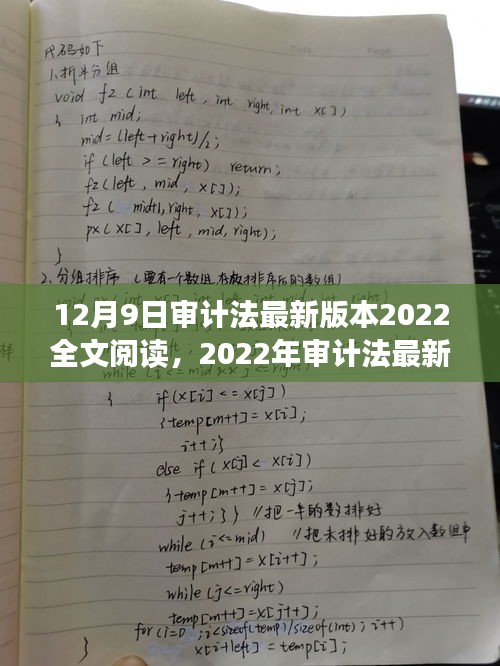 Date
Page
代码如下
1.折半分组
void fz (int left, int right, int x[])
{ int mid;
mid=(left+right)/2;
if (left >= right) return;
fz(left, mid, x[]);
fz( mid+1, right, x[]);
px(x[], left, mid, right);
}
2.分组排序 (要有一个数组存放排序后的数组)
12月9日审计法最新版本2022
全文阅读，2022年审计法最新
{ if(x[i]<=x[j])
{temp[m++]=x[i];
i++;}
else if (x[j]<x[i])
}temp[m++]=x[j];
j++;} } //把一半的数排好
while (i<=mid) //把未排好的放入数组中
temp[m++]=x[i++];
while(j<=right)
temp[m++]=x[j++];
for(i=0;i<sizeof(temp)/sizeof(int);i++)
} x[i+left]=temp[i];